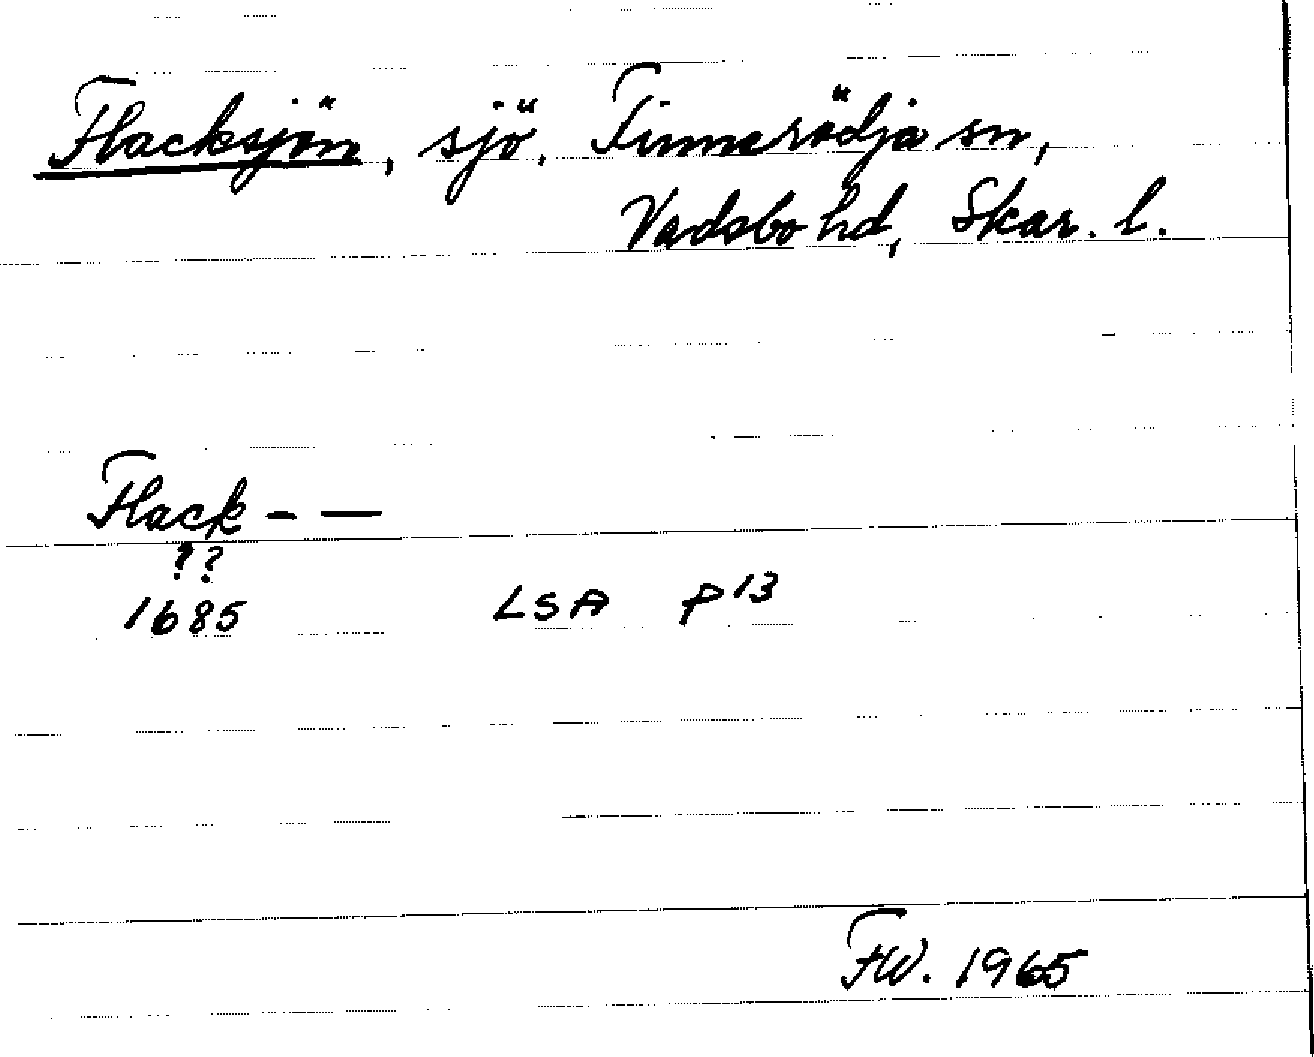 Flacksjön, sjö, Finnerödja sn,
Vadsbo hd, Skar. l.
Flack - —
??
1685 LSA P13
FW. 1965